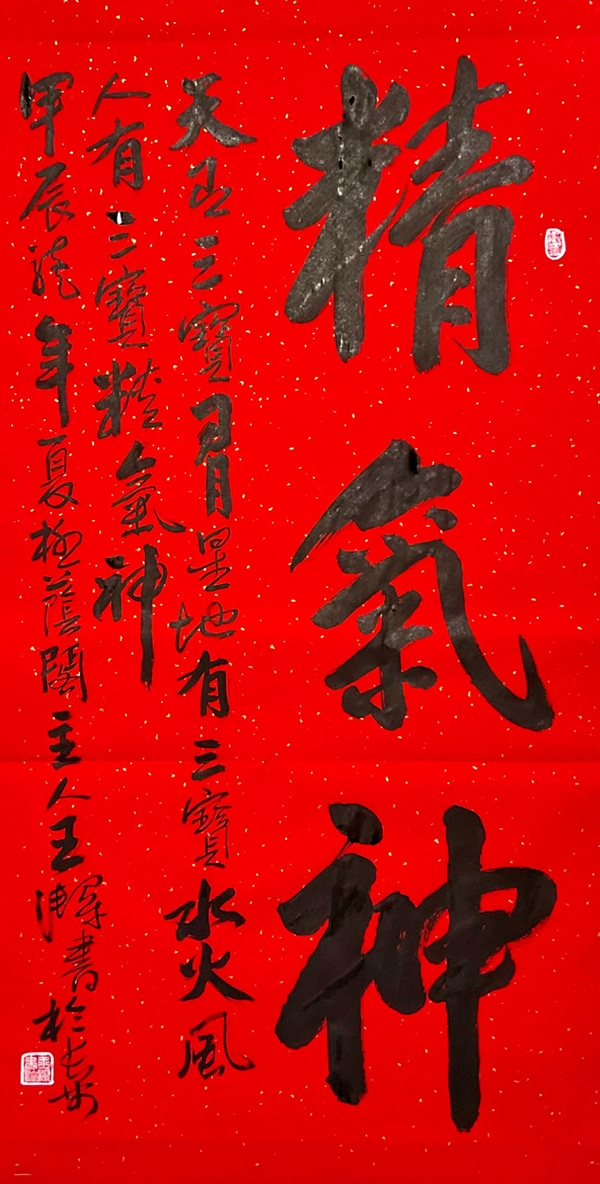 精氣神
天有三寶日月星地有三寶水火風
人有三寶精氣神
甲辰龍年夏極蔭閣主人王澤書於長沙